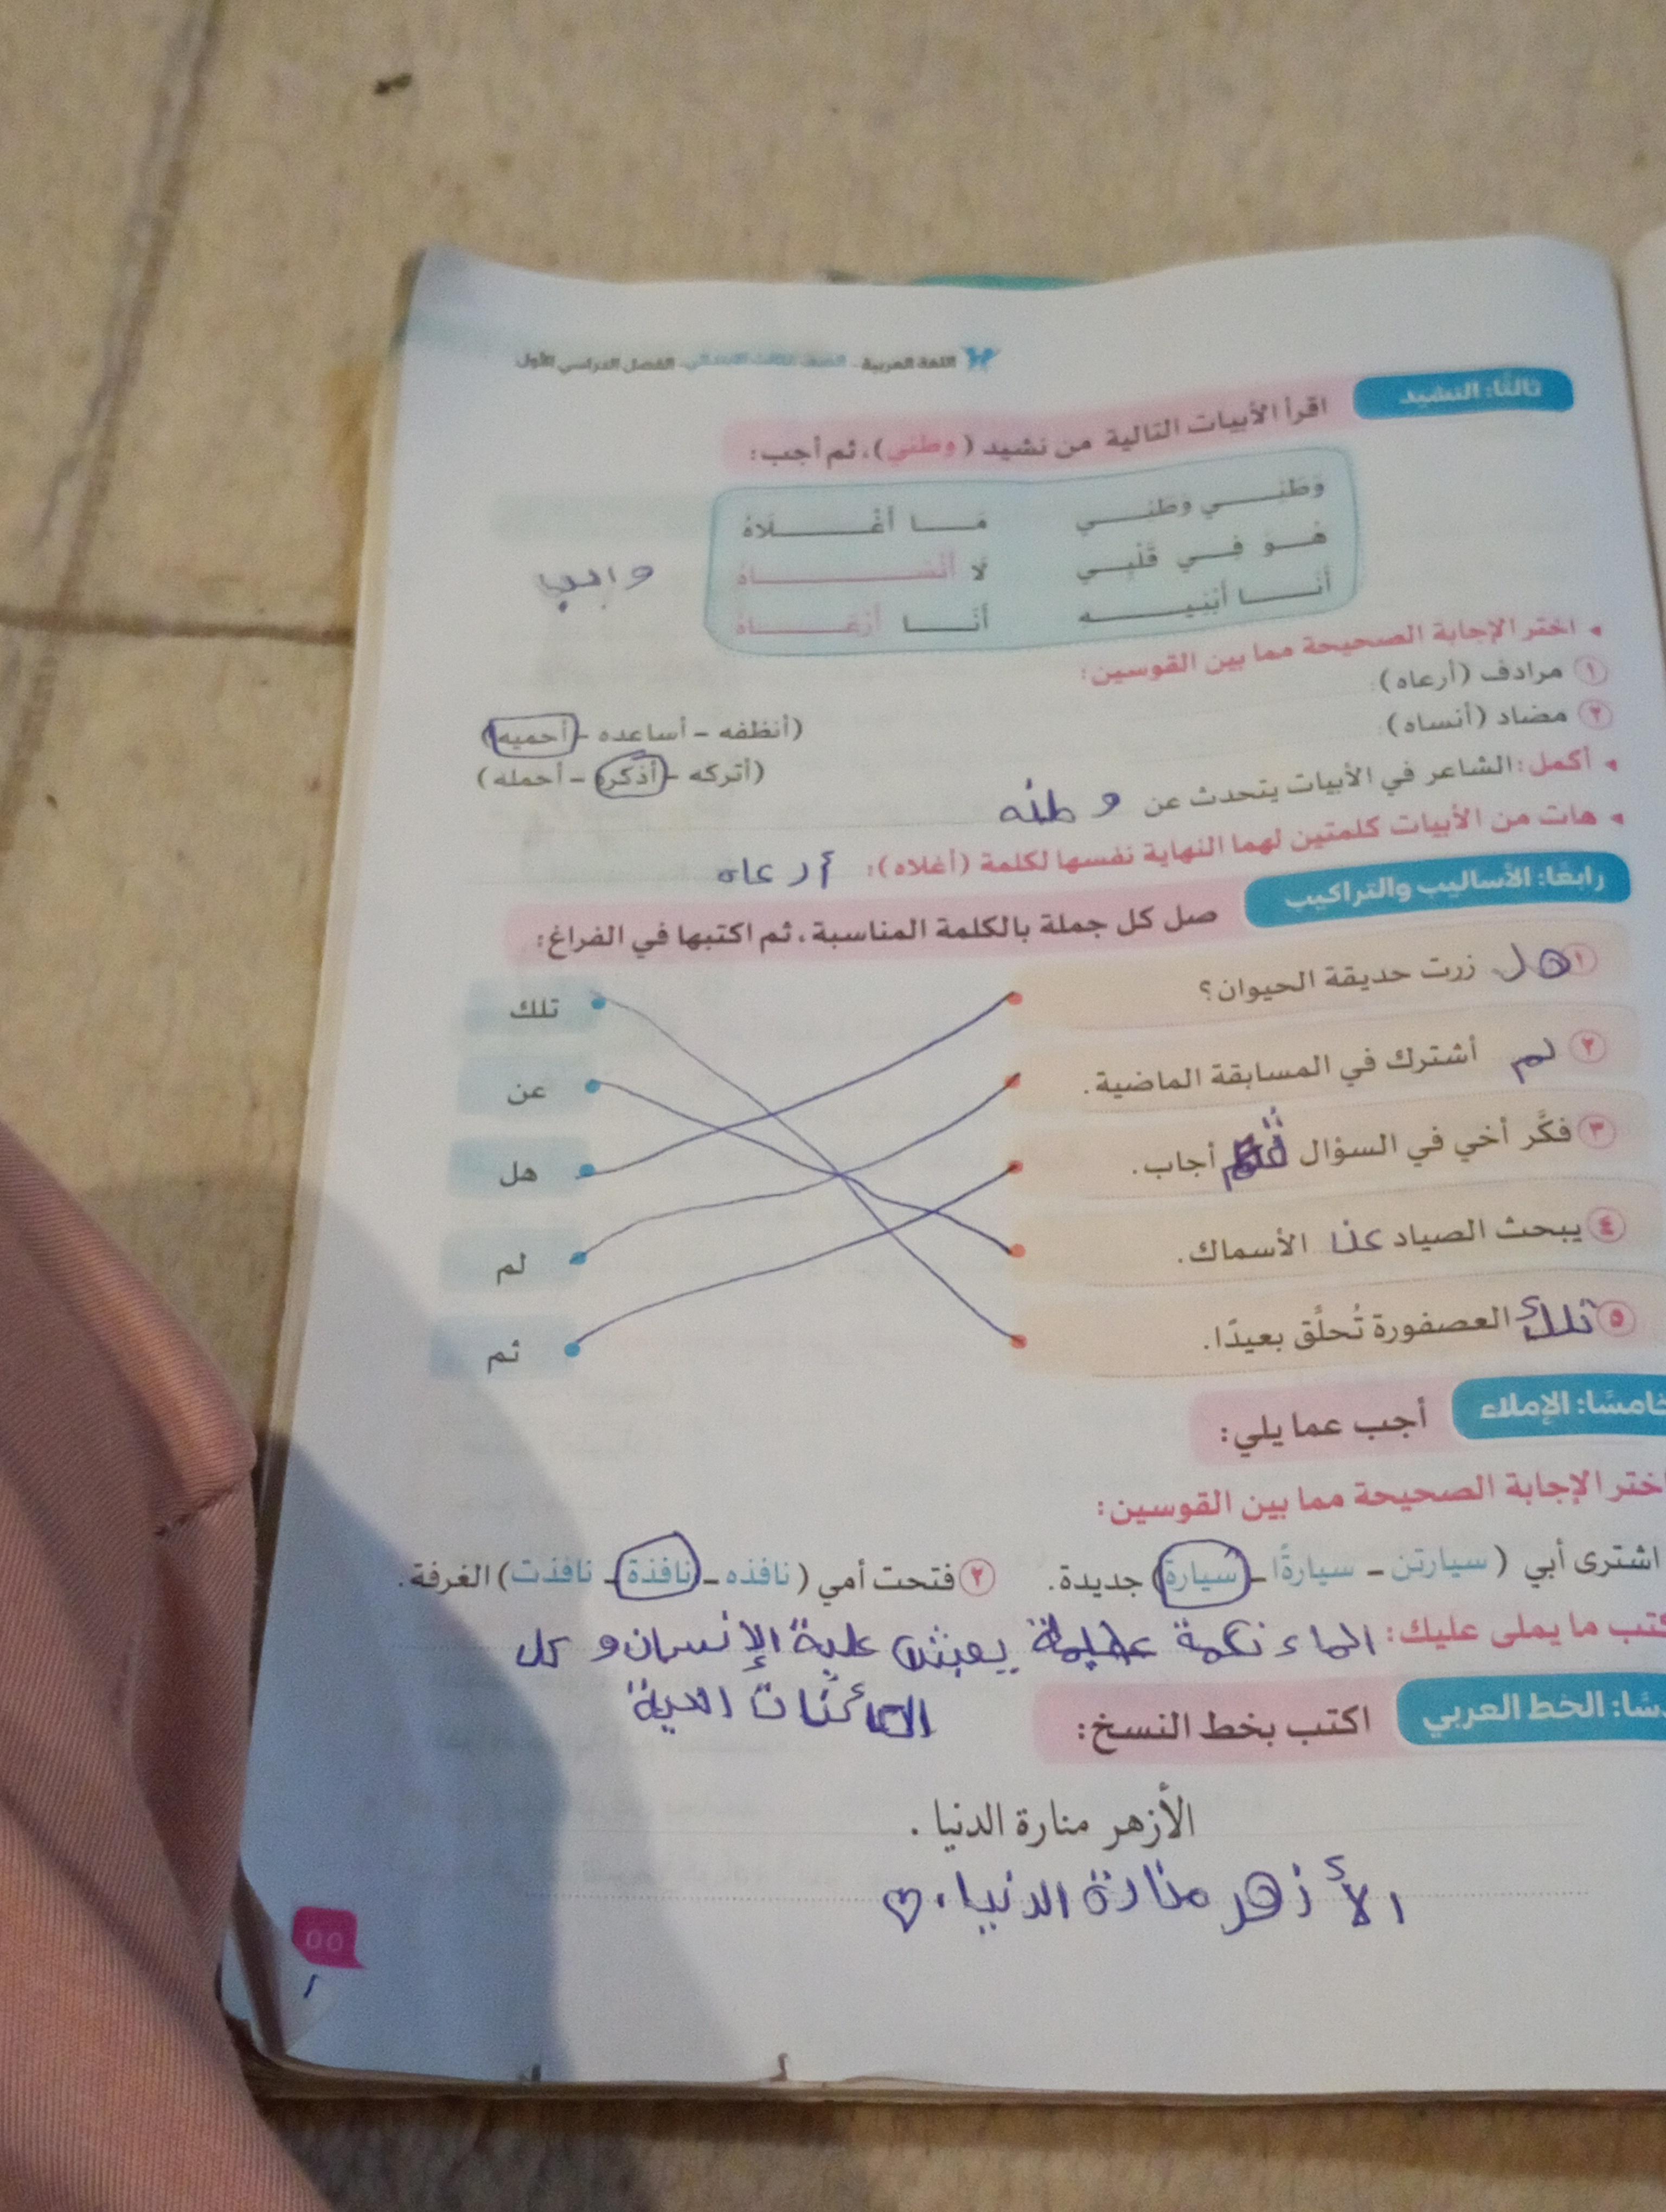 اللغة العربية - الصف الثالث الابتدائي - الفصل الدراسي الأول
ثالثًا: النشيد
اقرأ الأبيات التالية من نشيد (وطني)، ثم أجب:
وَطَنِـــي وَطَنِـــي مَـــا أَغْـــلَاهُ
هُـــوَ فِـــي قَلْبِـــي لَا أَنْسَـــاهُ
أَنَـــا أَبْنِيـــه أَنَـــا أَرْعَـــاهُ
اختر الإجابة الصحيحة مما بين القوسين:
١ مرادف (أرعاه): (أنظفه - أساعده - أحميه)
٢ مضاد (أنساه): (أتركه - أذكره - أحمله)
أكمل: الشاعر في الأبيات يتحدث عن وطنه
هات من الأبيات كلمتين لهما النهاية نفسها لكلمة (أغلاه): أرعاه
رابعًا: الأساليب والتراكيب
صل كل جملة بالكلمة المناسبة، ثم اكتبها في الفراغ:
١ هل زرت حديقة الحيوان؟ تلك
٢ لم أشترك في المسابقة الماضية. عن
٣ فكَّر أخي في السؤال ثم أجاب. هل
٤ يبحث الصياد عن الأسماك. لم
٥ تلك العصفورة تُحلِّق بعيدًا. ثم
خامسًا: الإملاء
أجب عما يلي:
اختر الإجابة الصحيحة مما بين القوسين:
اشترى أبي (سيارتن - سيارةًا - سيارة) جديدة. ٢ فتحت أمي (نافذه - نافذة - نافذت) الغرفة.
كتب ما يملى عليك: الماء نكمة عظيمة يعيش علية الإنسان و كل
الكائنات الحية
دسًا: الخط العربي
اكتب بخط النسخ:
الأزهر منارة الدنيا .
الأزهر منارة الدنيا .